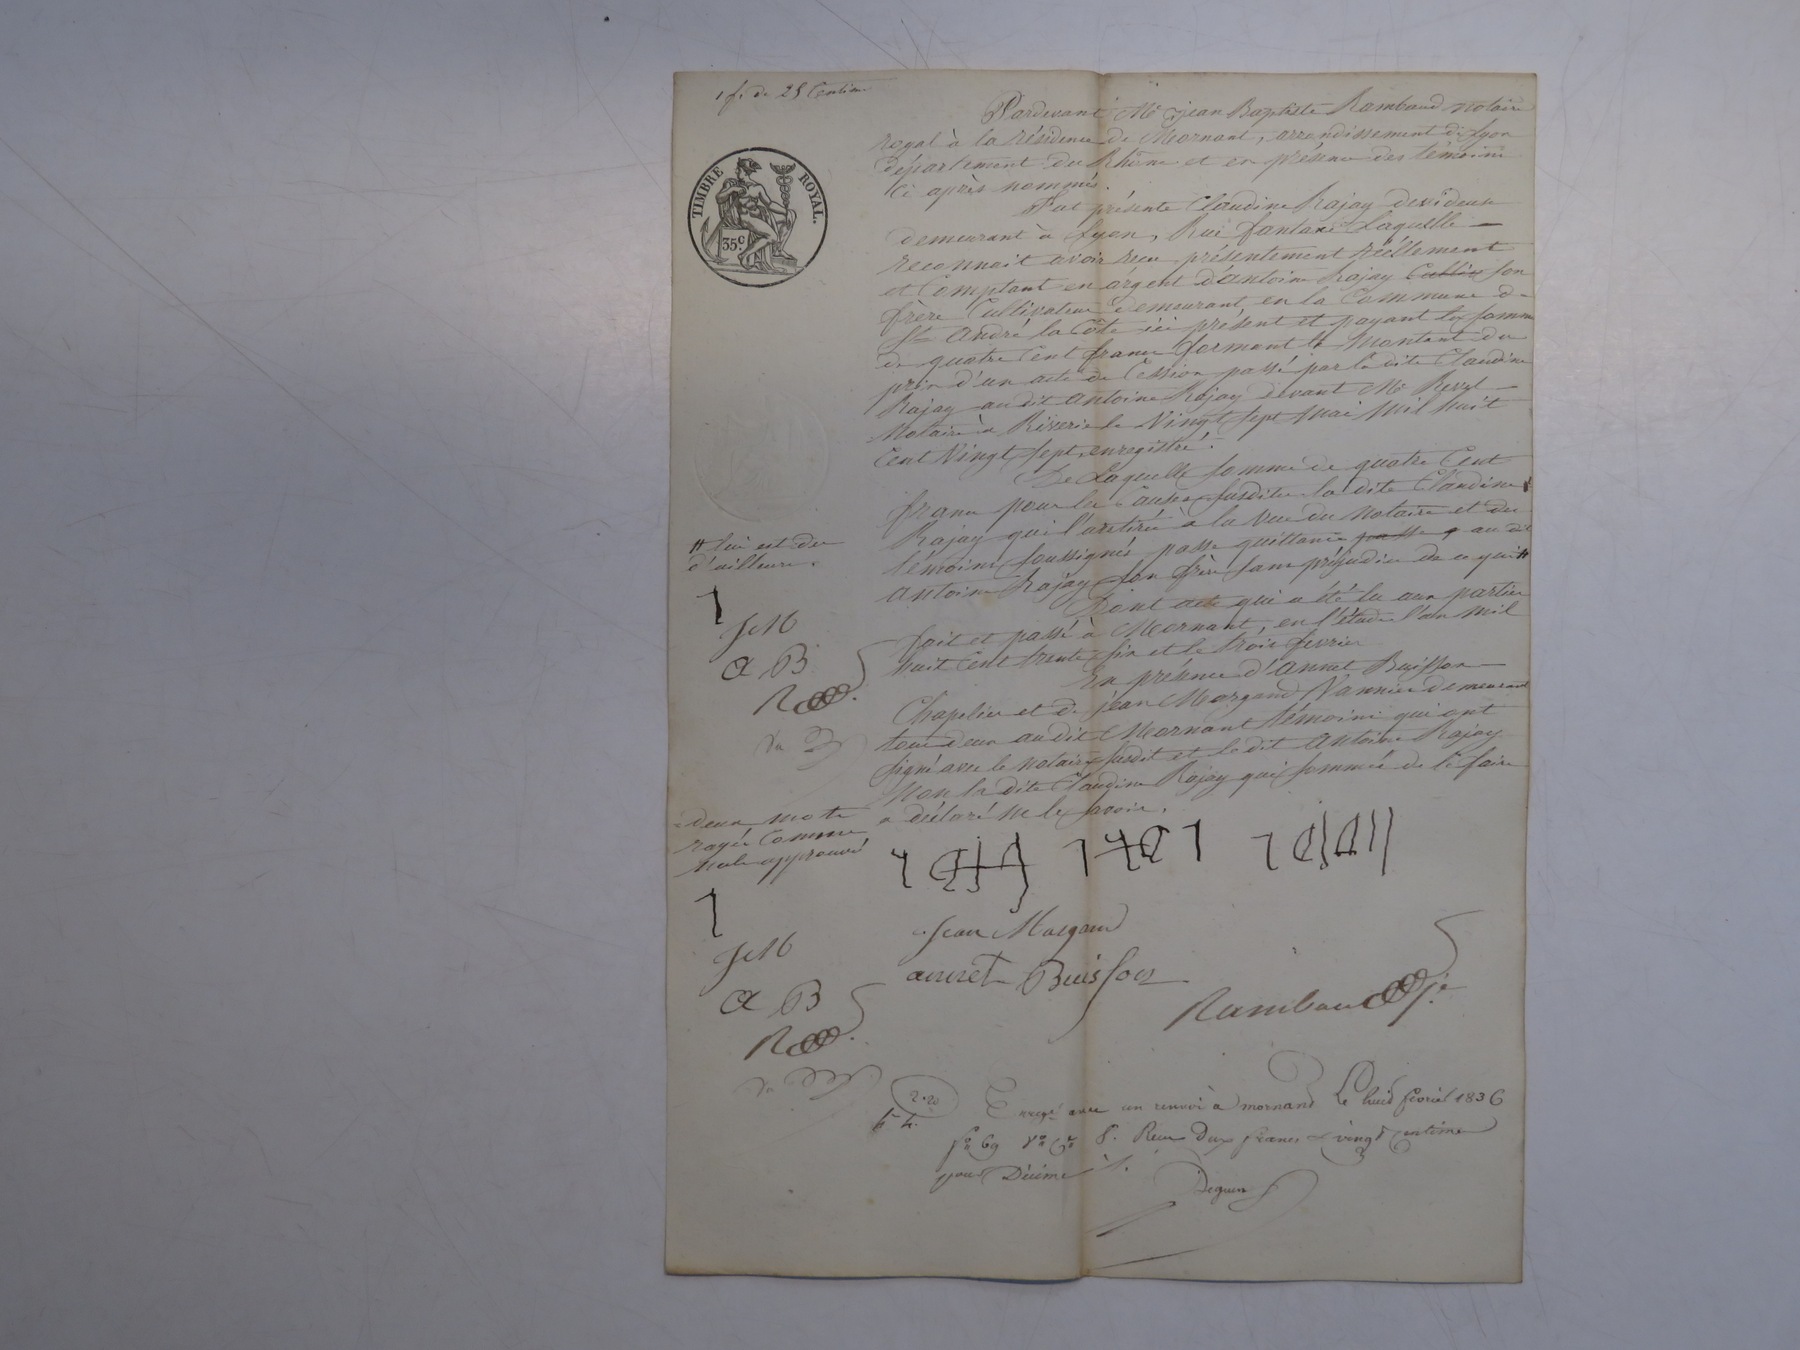 1 f. de 25 Centimes
TIMBRE ROYAL.
35 c.
Pardevant Me jean Baptiste Rambaud notaire
royal à la résidence de Mornant, arrondissement de Lyon
département du Rhône et en présence des témoins
ci après nommés.
Fut présente Claudine Rajay devideuse
demeurant à Lyon, Rue Laquelle
reconnait avoir reçu présentement réellement
et Comptant en argent d'antoine Rajay Cultiv son
frère Cultivateur demeurant en la Commune de
St André la Côte ici présent et payant la somme
de quatre Cent francs formant le Montant du
prix d'un acte de Cession passé par la dite Claudine
Rajay au dit Antoine Rajay devant Me Revel
Notaire à Riverie le Vingt sept Mai Mil huit
Cent Vingt sept, enregistré.
De Laquelle somme de quatre Cent
francs pour les Causes susdites la dite Claudine
Rajay qui l'a retirée à la vue du Notaire et des
témoins soussignés passe quittance passe au dit
Antoine Rajay son frère sans préjudice de ce qui #
# lui est du
d'ailleurs.
J
J M
a B
R
Dont acte qui a été lu aux parties
fait et passé à Mornant, en l'étude l'an mil
huit Cent trente six et le trois fevrier
En présence d'annet Buisson
Chapelier et de jean Morgand Vannier demeurant
tous deux au dit Mornant témoins qui ont
signé avec le notaire susdit et le dit Antoine Rajay
Non la dite Claudine Rajay qui sommée de le faire
a déclaré ne le savoir.
deux mots
rayés Comme
nuls approuvé
J
J M
a B
R
Jean Morgand
annet Buisson
Rambaud
2.20
Enregé avec un renvoi à mornand Le huit fevrier 1836
fo 69 Vo Ce 8. Recu Deux francs vingt Centimes
pour Décime